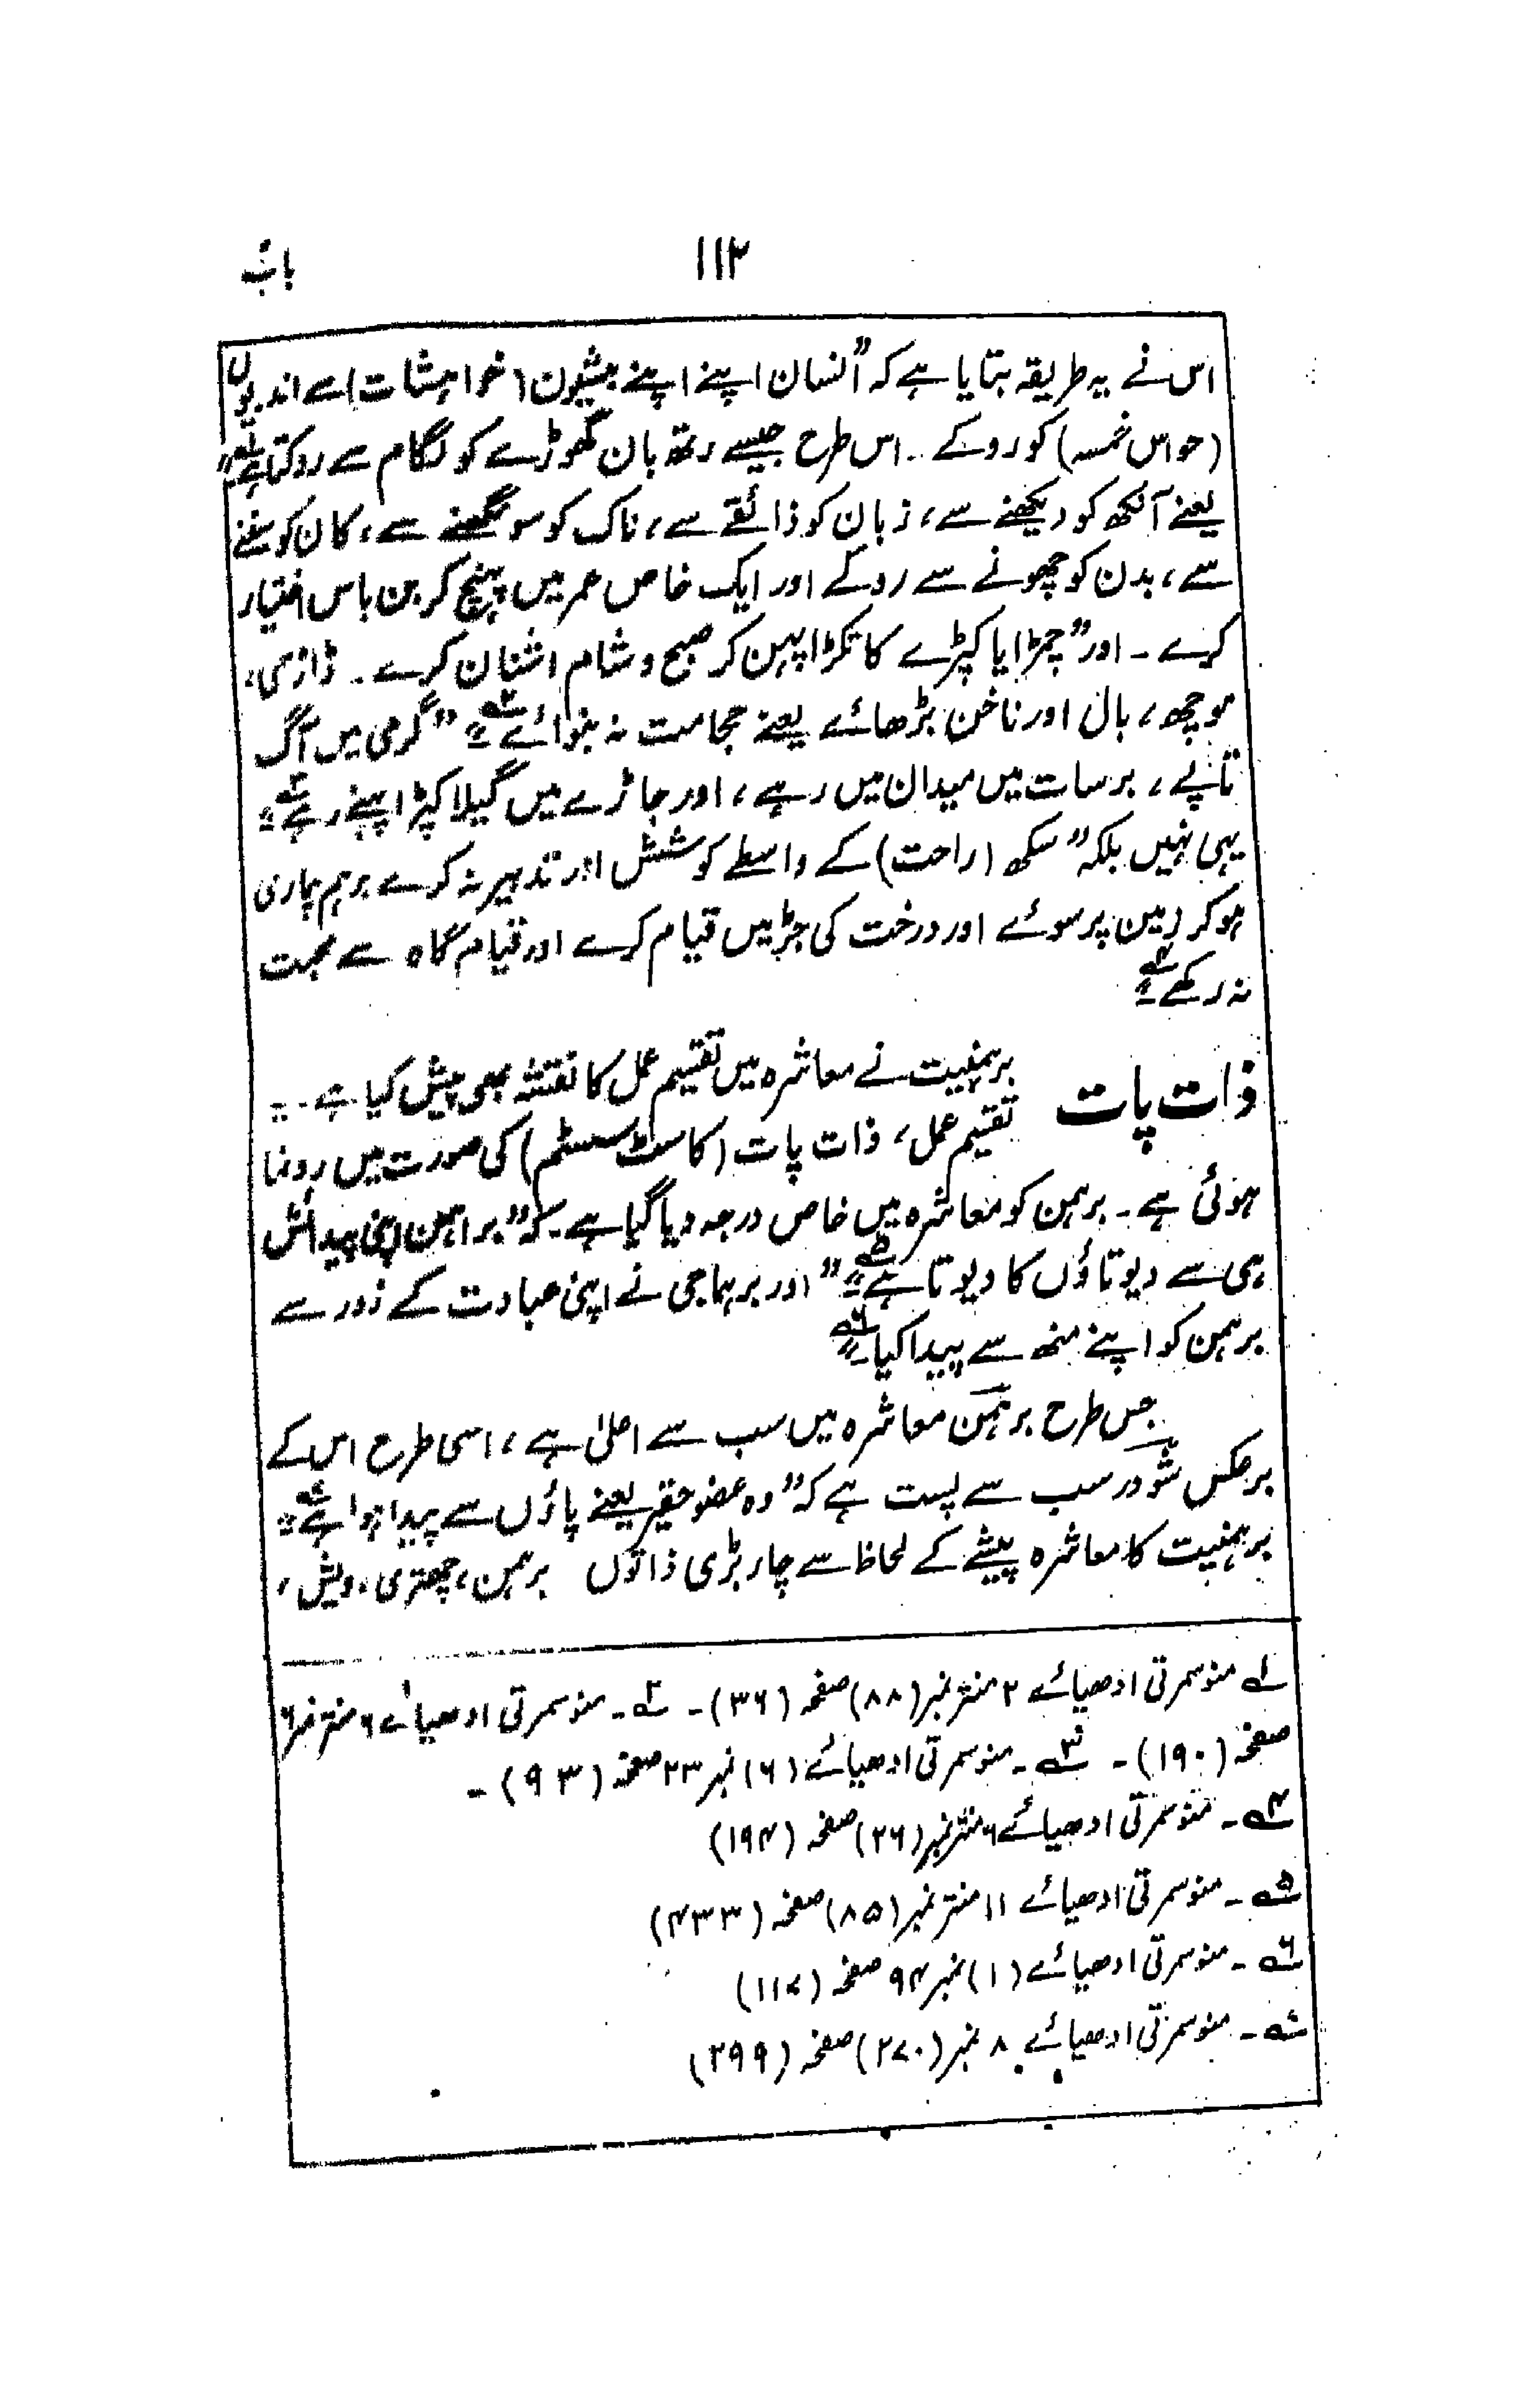 ۱۱۲
باب
اس نے یہ طریقہ بتایا ہے کہ ”انسان اپنے اپنے بیشیون (خواہشات) سے اندریوں
(حواس خمسہ) کو روکے ۔ اس طرح جیسے رتھ بان گھوڑے کو لگام سے روکتا ہے۱؎“
یعنے آنکھ کو دیکھنے سے، زبان کو ذائقے سے، ناک کو سونگھنے سے، کان کو سننے
سے، بدن کو چھونے سے روکے اور ایک خاص عمر میں پہنچ کر بن باس اختیار
کرے ۔ اور ”چمڑا یا کپڑے کا ٹکڑا پہن کر صبح و شام اشنان کرے ۔ ڈاڑھی،
موچھ، بال اور ناخن بڑھائے یعنے حجامت نہ بنوائے۲؎“ ”گرمی میں آگ
تاپے، برسات میں میدان میں رہے، اور جاڑے میں گیلا کپڑا پہنے رہے۳؎“
یہی نہیں بلکہ ”سکھ (راحت) کے واسطے کوشش اور تدبیر نہ کرے برہم چاری
ہو کر زمین پر سوئے اور درخت کی جڑ میں قیام کرے اور قیام گاہ سے محبت
نہ رکھے۴؎“
ذات پات
برہمنیت نے معاشرہ میں تقسیم عمل کا نقشہ بھی پیش کیا ہے ۔
تقسیم عمل، ذات پات (کاسٹ سسٹم) کی صورت میں رونما
ہوئی ہے ۔ برہمن کو معاشرہ میں خاص درجہ دیا گیا ہے ۔ کہ ”براہمن اپنی پیدائش
ہی سے دیوتاؤں کا دیوتا ہے۵؎“ ”اور برہما جی نے اپنی عبادت کے زور سے
برہمن کو اپنے منھ سے پیدا کیا۶؎“
جس طرح برہمن معاشرہ میں سب سے اعلیٰ ہے، اسی طرح اس کے
برعکس شودر سب سے پست ہے کہ ”وہ عضو حقیر یعنے پاؤں سے پیدا ہوا ہے۷؎“
برہمنیت کا معاشرہ پیشے کے لحاظ سے چار بڑی ذاتوں برہمن، چھتری، ویش،
۱؎ منوسمرتی ادھیائے ۲ منتر نمبر (۸۸) صفحہ (۳۶) ۔ ۲؎ ۔ منوسمرتی ادھیائے ۶ منتر نمبر ۶
صفحہ (۱۹۰) ۔ ۳؎ ۔ منوسمرتی ادھیائے (۶) نمبر ۲۳ صفحہ (۹۳) ۔
۴؎ ۔ منوسمرتی ادھیائے ۶ منتر نمبر (۲۶) صفحہ (۱۹۴)
۵؎ ۔ منوسمرتی ادھیائے ۱۱ منتر نمبر (۸۵) صفحہ (۴۳۳)
۶؎ ۔ منوسمرتی ادھیائے (۱) نمبر ۹۴ صفحہ (۱۱۷)
۷؎ ۔ منوسمرتی ادھیائے ۸ نمبر (۲۷۰) صفحہ (۲۹۹)